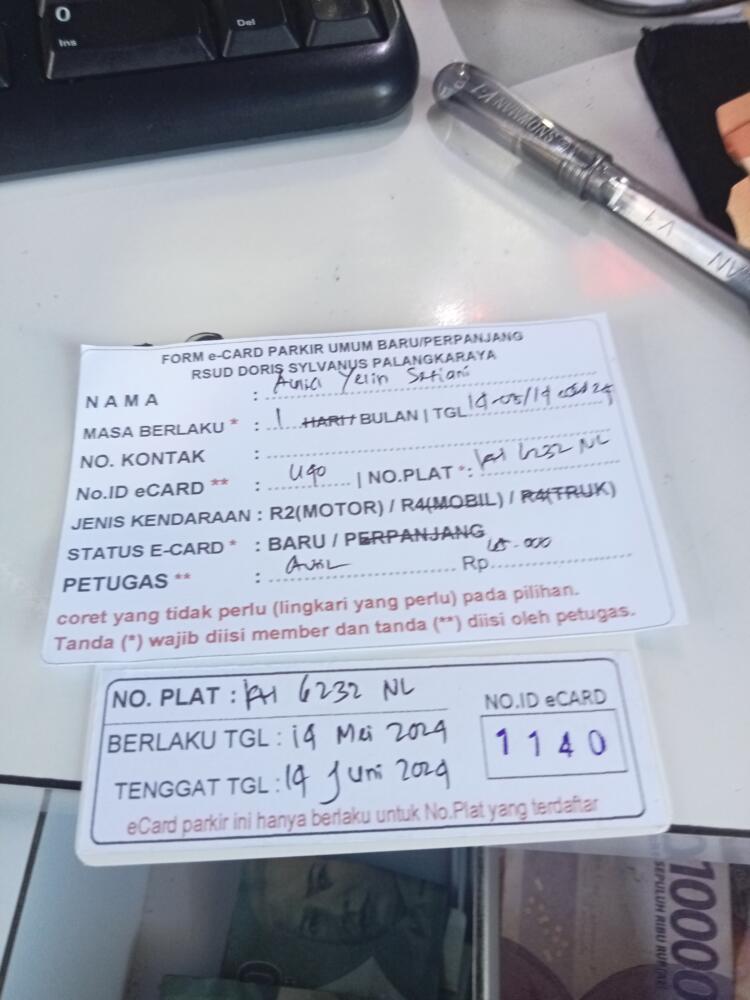 0
Ins
Del
SNOWMAN V1
FORM e-CARD PARKIR UMUM BARU/PERPANJANG
RSUD DORIS SYLVANUS PALANGKARAYA
NAMA : Yerin Setiani
MASA BERLAKU * : 1 HARI / BULAN | TGL
NO. KONTAK :
No.ID eCARD ** : | NO.PLAT * : KH 6232 NL
JENIS KENDARAAN : R2(MOTOR) / R4(MOBIL) / R4(TRUK)
STATUS E-CARD * : BARU / PERPANJANG
PETUGAS ** : Rp
coret yang tidak perlu (lingkari yang perlu) pada pilihan.
Tanda (*) wajib diisi member dan tanda (**) diisi oleh petugas.
NO. PLAT : KH 6232 NL
BERLAKU TGL : 14 Mei 2024
TENGGAT TGL : 14 Juni 2024
NO.ID eCARD
1140
eCard parkir ini hanya berlaku untuk No.Plat yang terdaftar
10000
SEPULUH RIBU RUPIAH